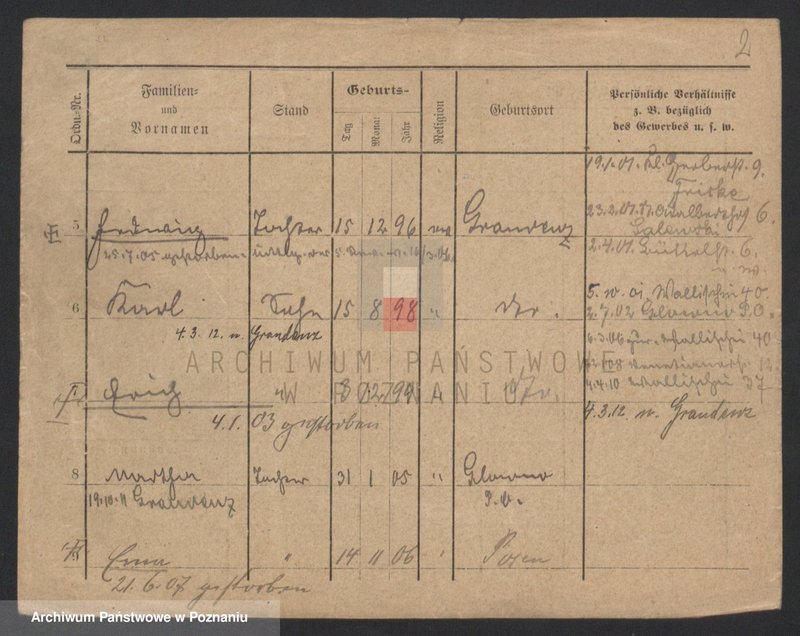 2
Ordn.-Nr.
Familien-
und
Vornamen
Stand
Geburts-
Tag
Monat
Jahr
Religion
Geburtsort
Persönliche Verhältnisse
z. B. bezüglich
des Gewerbes u. s. w.
19.1.01. Kl. Gerberst. 9.
Friske
5 Hedwig Tochter 15 12 96 ev Graudenz
23.2.01. 6.
25.7.05 gestorben
2.4.01. 6.
6 Karl Sohn 15 8 98 " do.
5. 01 Wallischei 40
2.7.02 Glowno P.O.
4.3.12 n. Graudenz
6.3.06 Wallischei 40
ARCHIWUM PAŃSTWOWE
W POZNANIU
12
7 Erich " 8 12 99 " do.
4.4.10 Wallischei 37
4.1.03 gestorben
4.3.12 n. Graudenz
8 Martha Tochter 31 1 05 " Glowno
19.10.11 Graudenz
P.O.
9 Erna " 14 11 06 ' Posen
21.6.07 gestorben
Archiwum Państwowe w Poznaniu